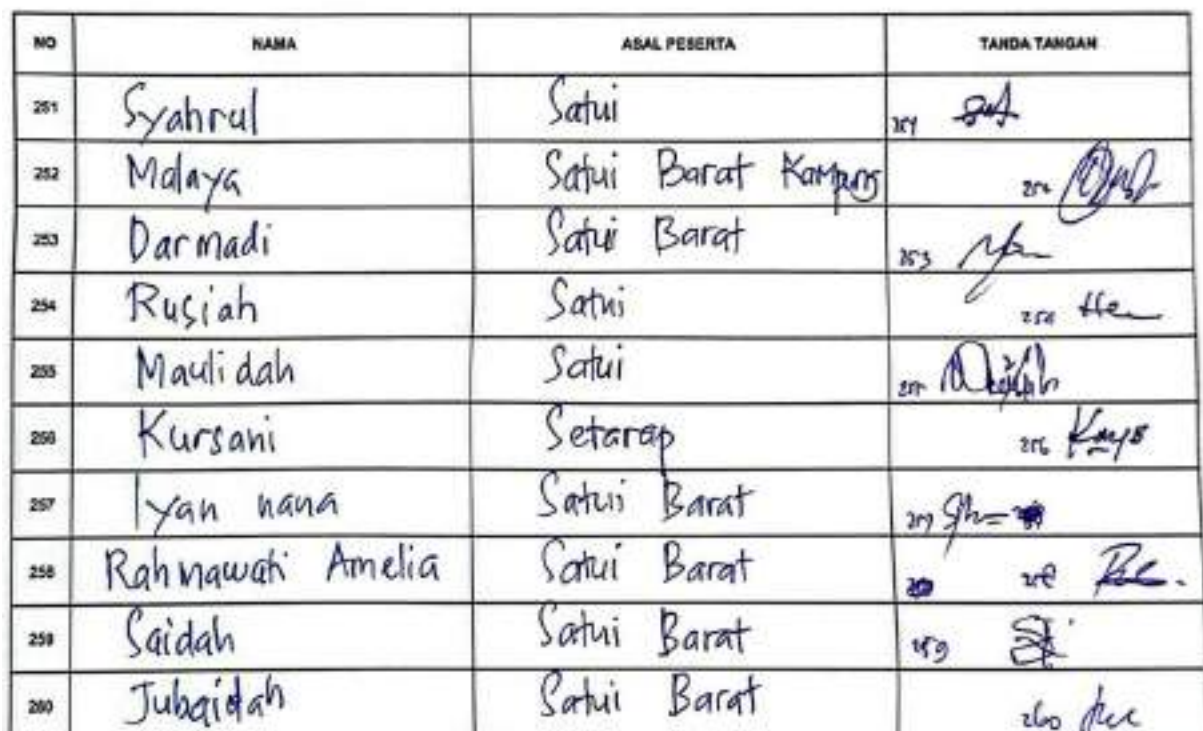 NO NAMA ASAL PESERTA TANDA TANGAN
251 Syahrul Satui 251
252 Malaya Satui Barat Kampung 252
253 Darmadi Satui Barat 253
254 Rusiah Satui 254
255 Maulidah Satui 255
256 Kursani Setarap 256
257 Iyan nana Satui Barat 257
258 Rahmawati Amelia Satui Barat 258
259 Saidah Satui Barat 259
260 Jubaidah Satui Barat 260